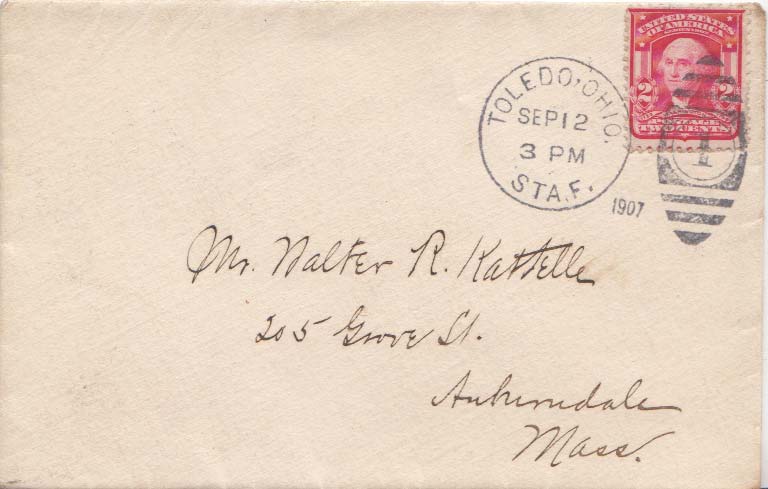 UNITED STATES
OF AMERICA
2 2
POSTAGE
TWO CENTS
TOLEDO, OHIO.
SEP 12
3 PM
STA. F.
1907
1
Mr. Walter R. Kattelle
205 Grove St.
Auburndale
Mass.